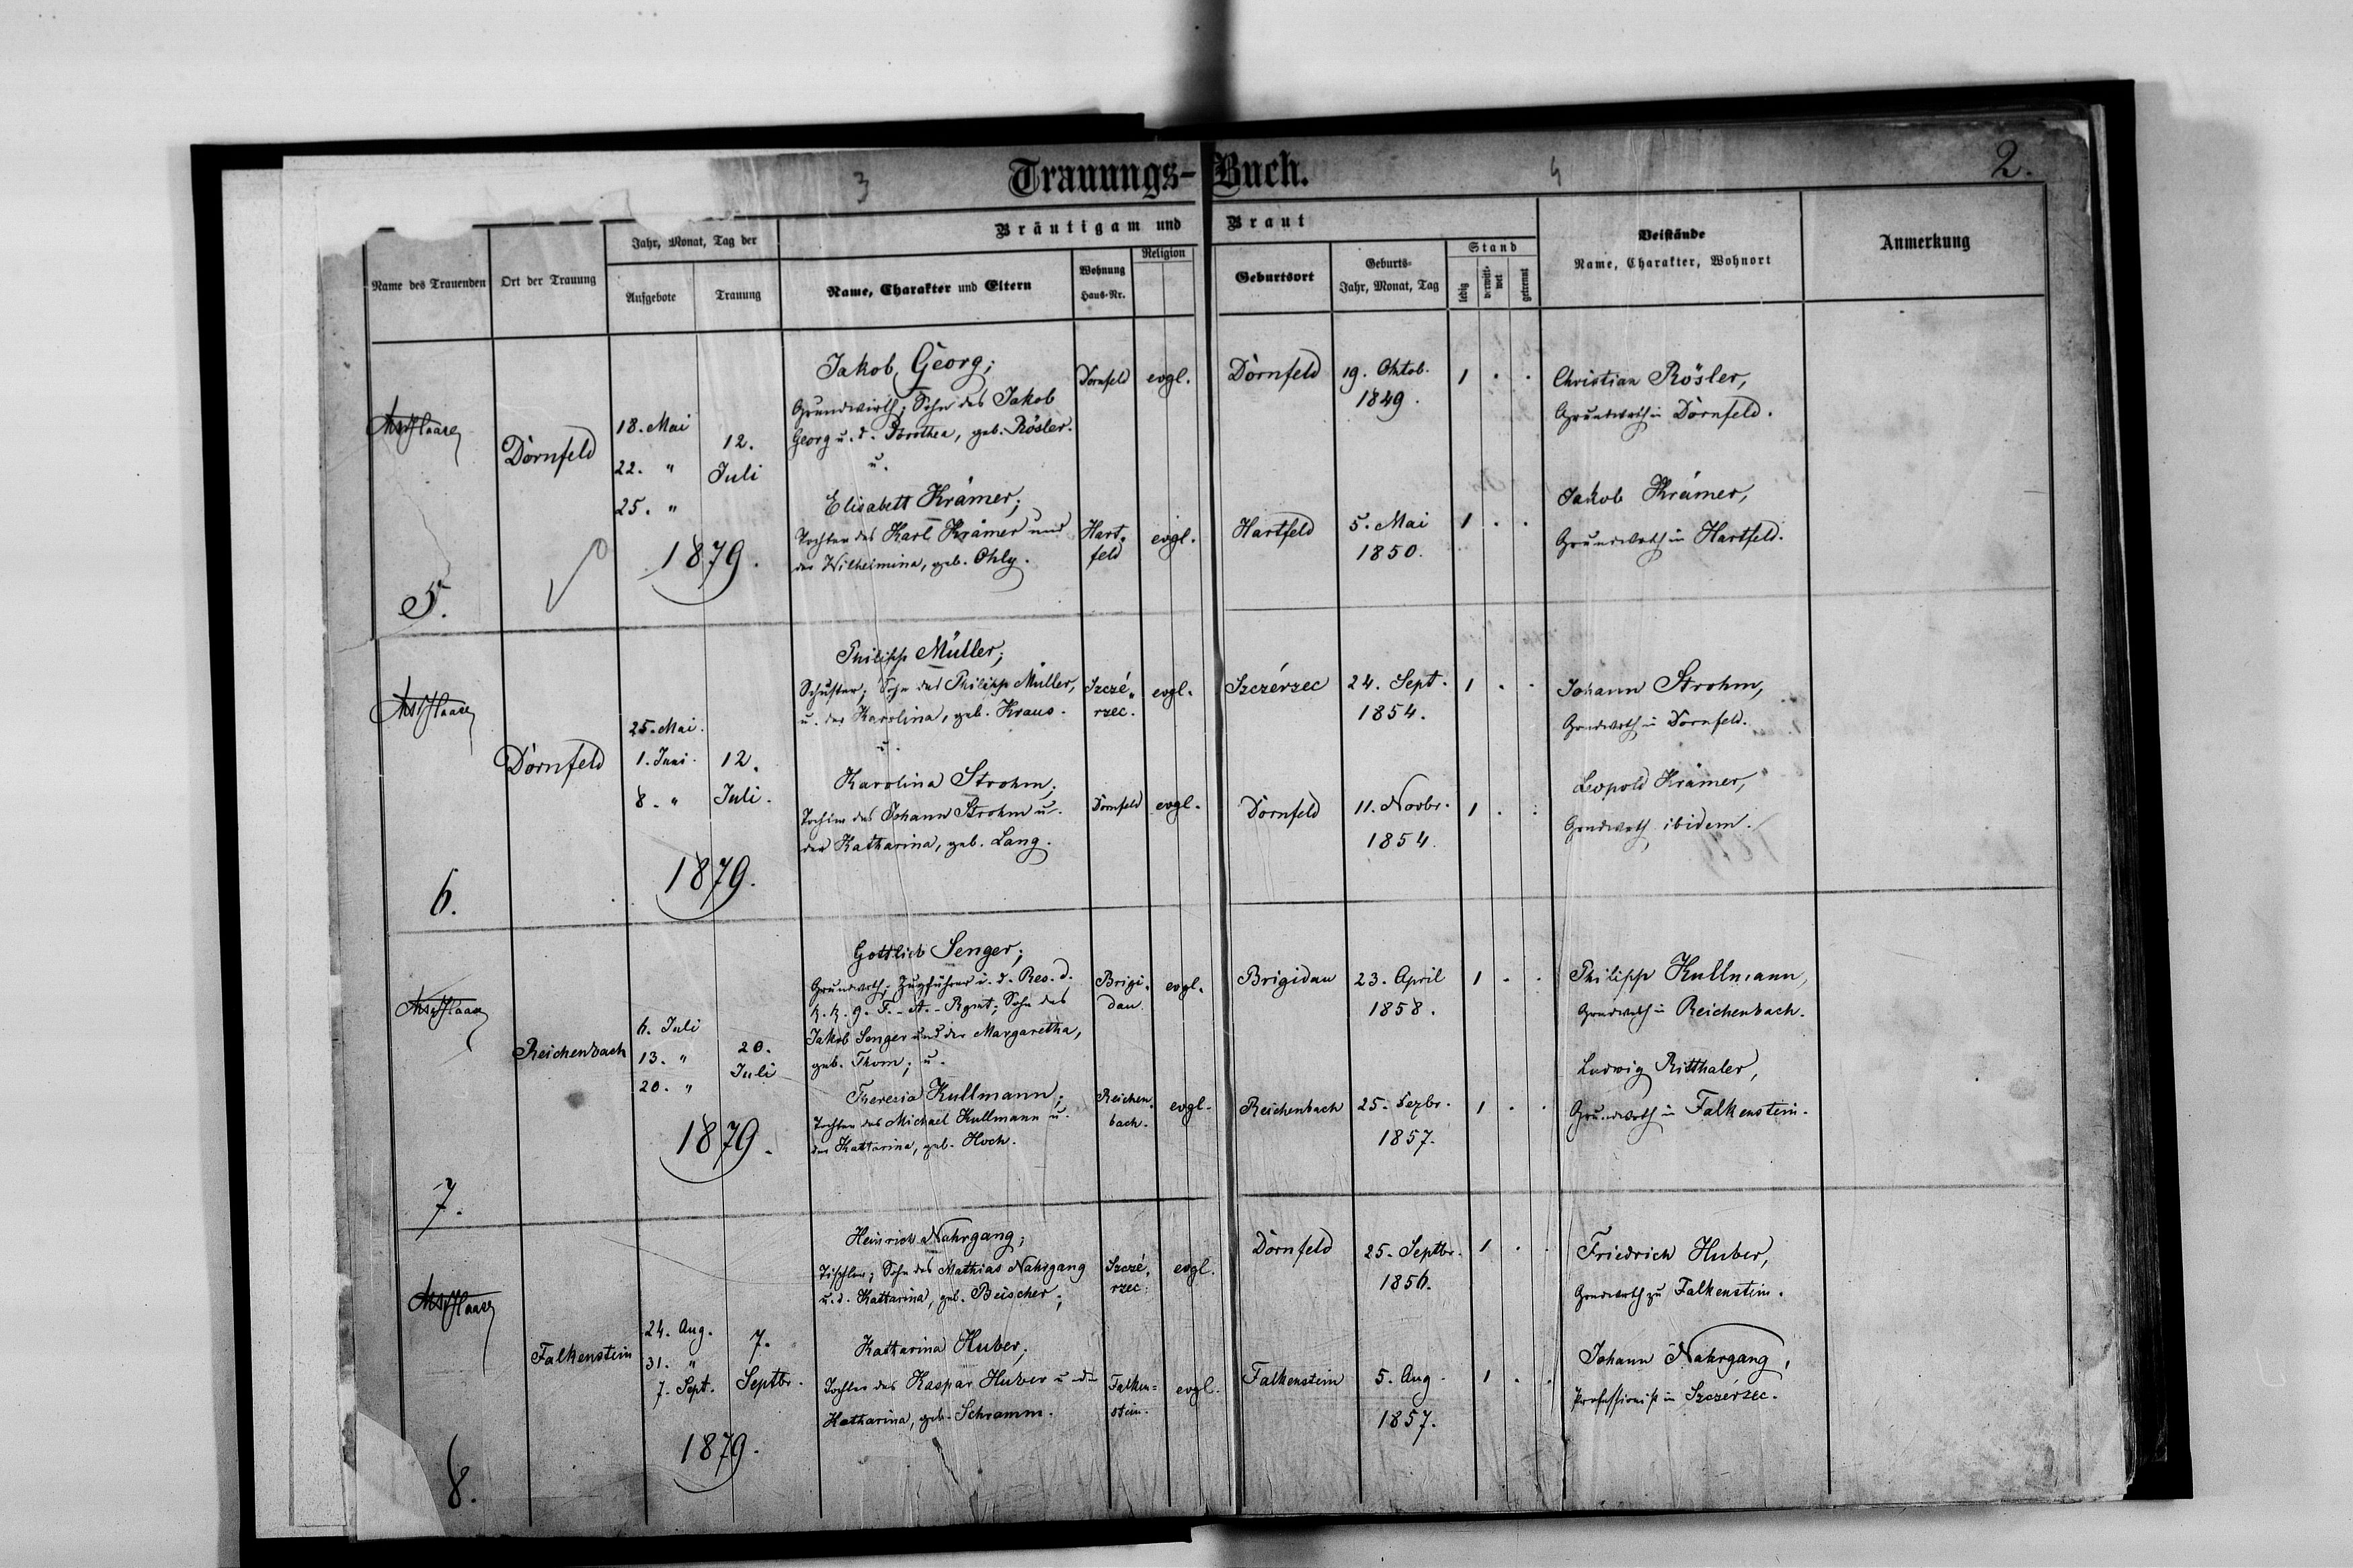 3
Trauungs-Buch.
4
2.
Name des Trauenden
Ort der Trauung
Jahr, Monat, Tag der
Aufgebote
Trauung
Bräutigam und Braut
Name, Charakter und Eltern
Wohnung
Haus-Nr.
Religion
Geburtsort
Geburts-
Jahr, Monat, Tag
Stand
ledig
verwitt-
wet
getrennt
Beistände
Name, Charakter, Wohnort
Anmerkung
5.
Haase
Dornfeld
18. Mai
22. "
25. "
12.
Juli
1879.
Jakob Georg;
Grundwirth; Sohn des Jakob
Georg u. d. Dorothea, geb. Rösler.
u.
Dornfeld
evgl.
Dornfeld
19. Oktob.
1849.
1 . .
Christian Rösler,
Grundwrth in Dornfeld.
Elisabett Krämer;
Tochter des Karl Krämer und
der Wilhelmina, geb. Ohly.
Hart„
feld
evgl.
Hartfeld
5. Mai
1850.
1 . .
Jakob Krämer,
Grundwrth in Hartfeld.
6.
Haase
Dornfeld
25. Mai.
1. Juni.
8. "
12.
Juli.
1879.
Philipp Müller;
Schuster; Sohn des Philipp Müller,
u. der Karolina, geb. Kraus.
u.
Szczé„
rzec.
evgl.
Szczérzec
24. Sept.
1854.
1 . .
Johann Strohm,
Grndwrth in Dornfeld.
Karolina Strohm;
Tochter des Johann Strohm u.
der Katharina, geb. Lang.
Dornfeld
evgl.
Dornfeld
11. Novbr.
1854.
1 . .
Leopold Krämer,
Grndwrth ibidem.
7.
Haase
Reichenbach
6. Juli
13. "
20. "
20.
Juli
1879.
Gottlieb Senger;
Grundwrth; Zugführer i. d. Res. d.
k. k. 9. F.-A.-Rgmt; Sohn des
Jakob Senger und der Margaretha,
geb. Thom; u.
Brigi„
dau.
evgl.
Brigidau
23. April
1858.
1 . .
Philipp Kullmann,
Grndwrth in Reichenbach.
Theresia Kullmann;
Tochter des Michael Kullmann u.
der Kattarina, geb. Hoch.
Reichen„
bach.
evgl.
Reichenbach
25. Dezbr.
1857.
1 . .
Ludwig Ritthaler,
Grundwrth in Falkenstein.
8.
Haase
Falkenstein
24. Aug.
31. "
7. Sept.
7.
Septbr.
1879.
Heinrich Nahrgang;
Tischler; Sohn des Mathias Nahrgang
u. d. Kattarina, geb. Beischer;
Szczé„
rzec.
evgl.
Dornfeld
25. Septbr.
1856.
1 . .
Friedrich Huber,
Grundwrth zu Falkenstein.
Kattarina Huber;
Tochter des Kaspar Huber u. d.
Katharina, geb. Schramm.
Falken=
stein.
evgl.
Falkenstein
5. Aug.
1857.
1 . .
Johann Nahrgang,
Professionist in Szczérzec.